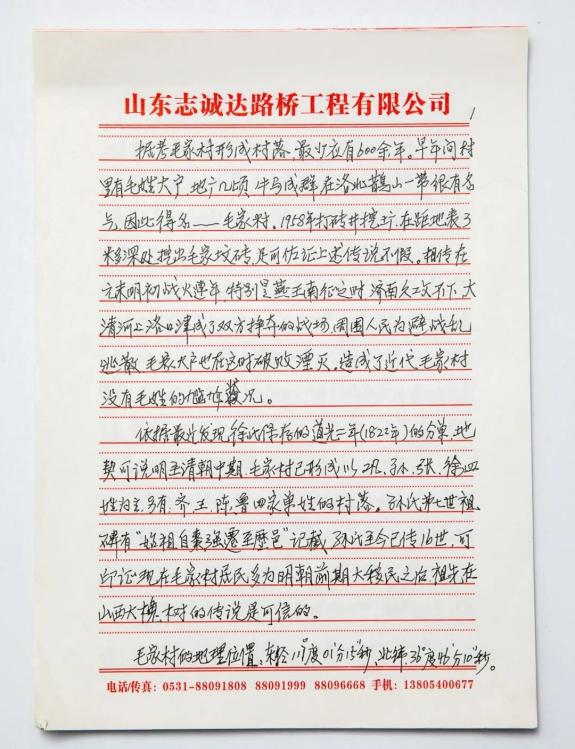 山东志诚达路桥工程有限公司
1
据考毛家村形成村落、最少应有600余年。早年间村
里有毛姓大户,地广几顷,牛马成群,在洛北鹊山一带很有名
气,因此得名——毛家村。1958年打砖井挖土,在距地表3
米多深处挖出毛家坟砖,足可佐证上述传说不假。相传在
元末明初战火连年,特别是燕王南征之时,济南久攻不下,大
清河上洛口津成了双方挣夺的战场,周围人民为避战乱
逃散,毛家大户也在这时破败湮灭。造成了近代毛家村
没有毛姓的尴尬状况。
依据最近发现,徐氏保存的道光二年(1822年)的分单、地
契可说明至清朝中期,毛家村已形成以巩、孙、张、徐四
姓为主,另有:齐、王、陈、鲁四家单姓的村落。孙氏第七世祖
碑有“始祖自枣强迁至歷邑”记载,孙氏至今已传16世,可
印证现在毛家村居民多为明朝前期大移民之后,祖先在
山西大槐树的传说是可信的。
毛家村的地理位置:东经117°度01分15秒,北纬36°度46分10秒。
电话/传真:0531-88091808 88091999 88096668 手机:13805400677